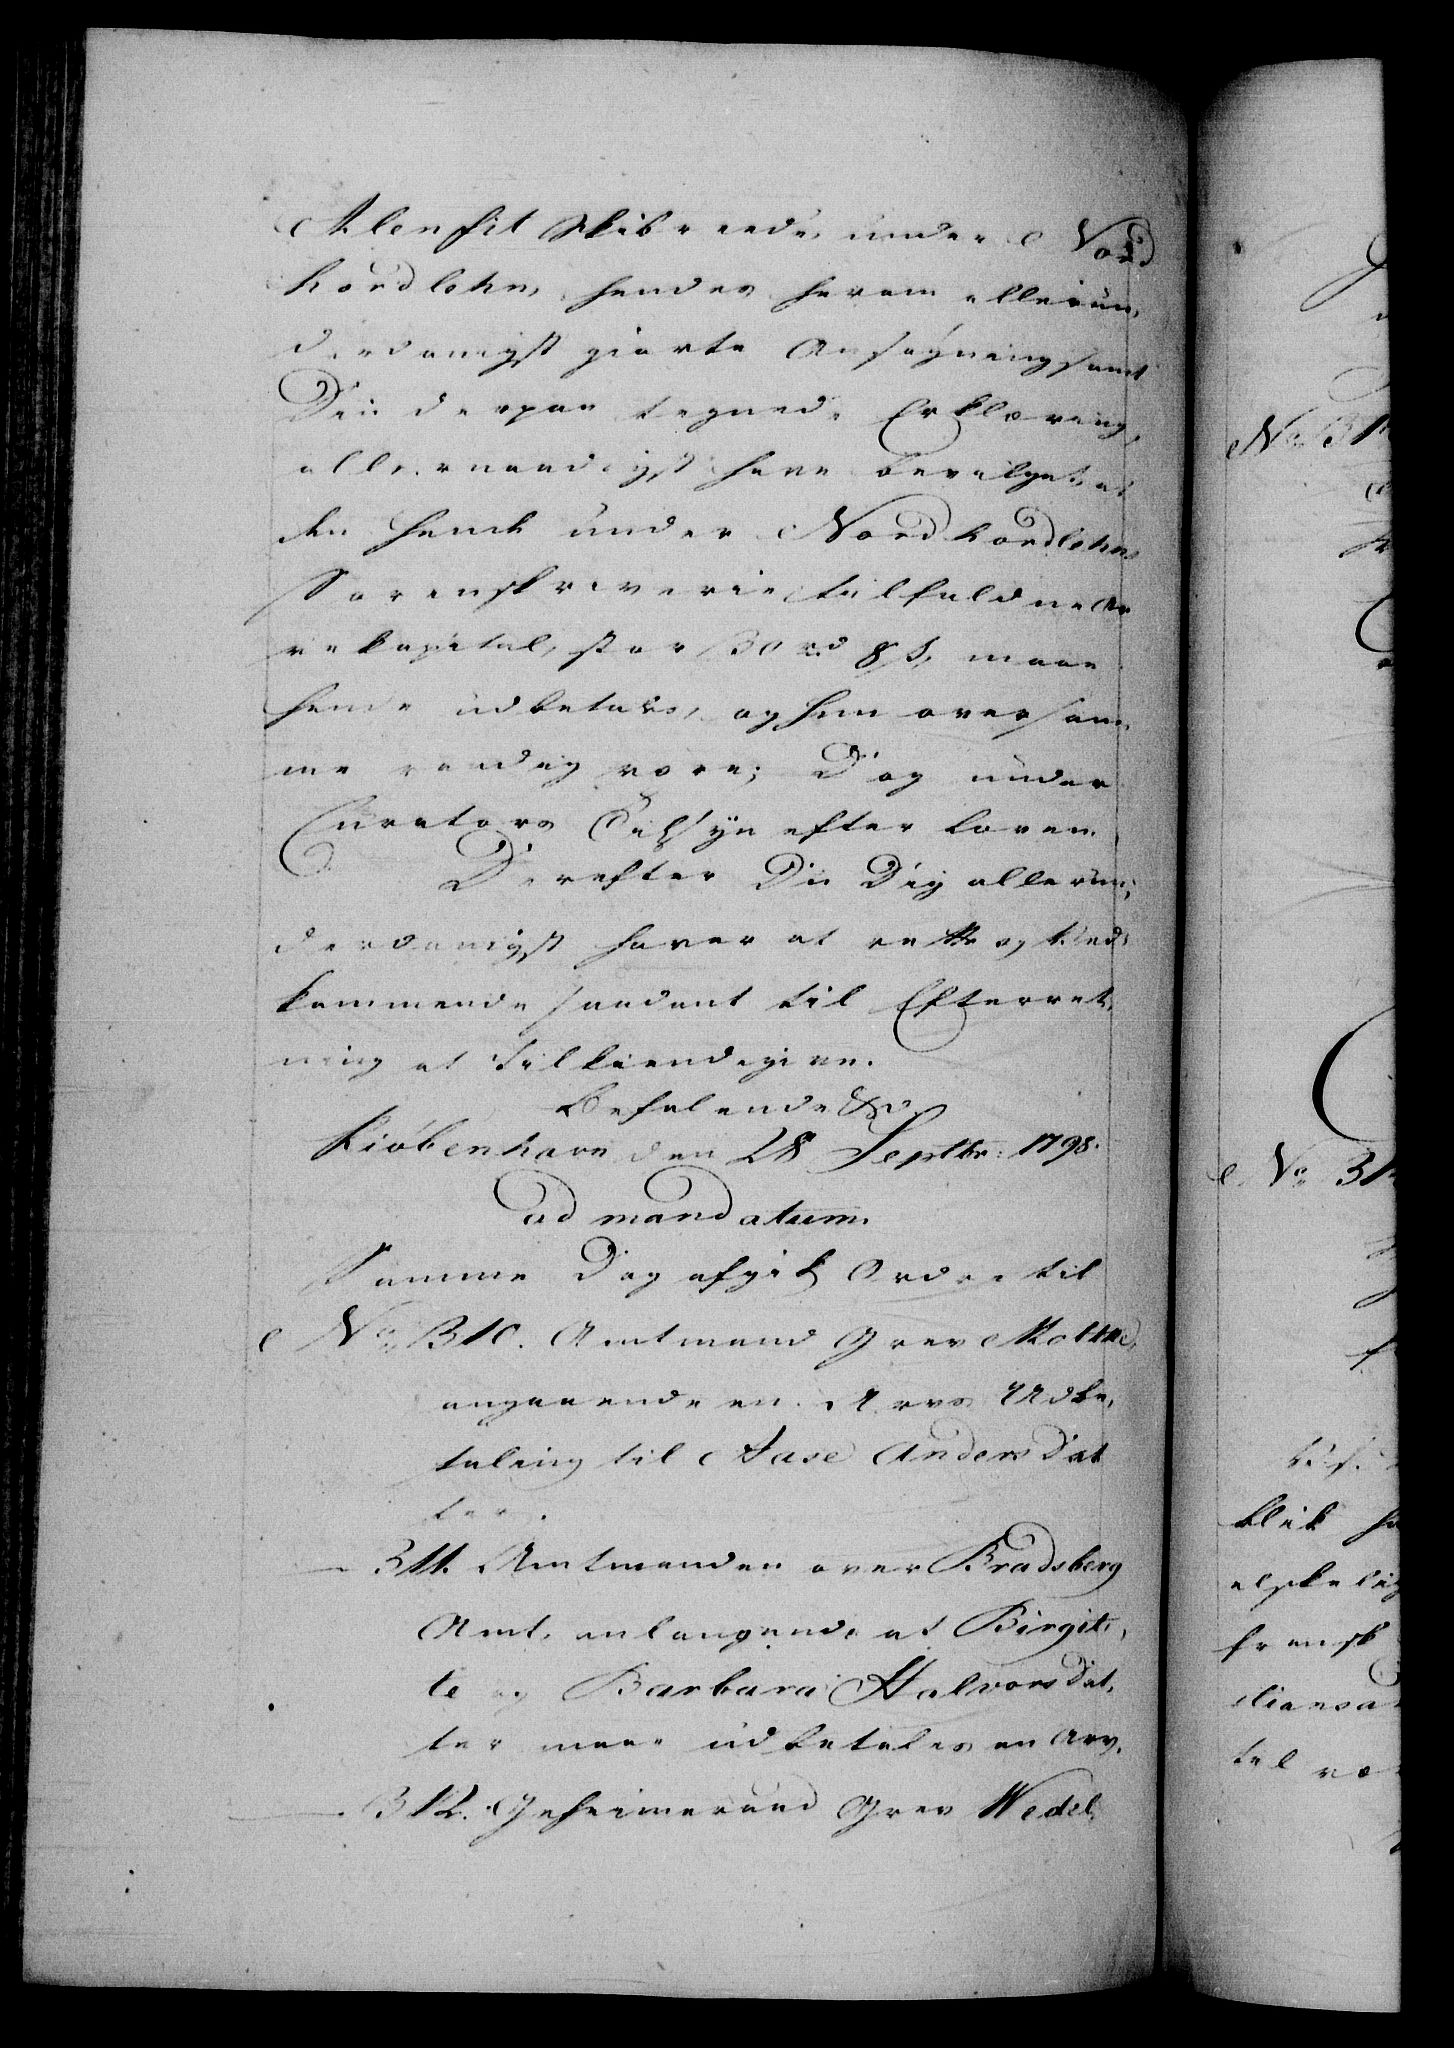 Alenfit Skibreede under Nord
hordlehn, hendes herom allerun,
derdanigst giorte Ansøgning samt
Din derpaa tegnede Erklæring,
allernaadigst have bevilget, at
den hende under Nordhordlehns
Sorenskriverie tilfaldne Ar
vekapital, stor 30 rd 8 s, maae
hende udbetales, og hun over sam,
me raadig være; Dog under
Curators Tilsyn efter Loven.
Derefter Du Dig allerun,
derdanigst haver at rette og Ved,
kommende saadant til Efterret,
ning at tilkiendegive.
Befalende &c.
Kiøbenhavn den 28 Septbr: 1798.
ad mandatum.
Samme Dag afgik Ordre til
No 310. Amtmand Grev Moltke,
angaaende en Arvs Udbe,
taling til Aase Anders Dat
ter.
— 311. Amtmanden over Bradsberg
Amt, anlangende at Birgit,
te og Barbara Halvors Dat,
ter maae udbetales en Arv.
— 312. Geheimeraad Grev Wedel,